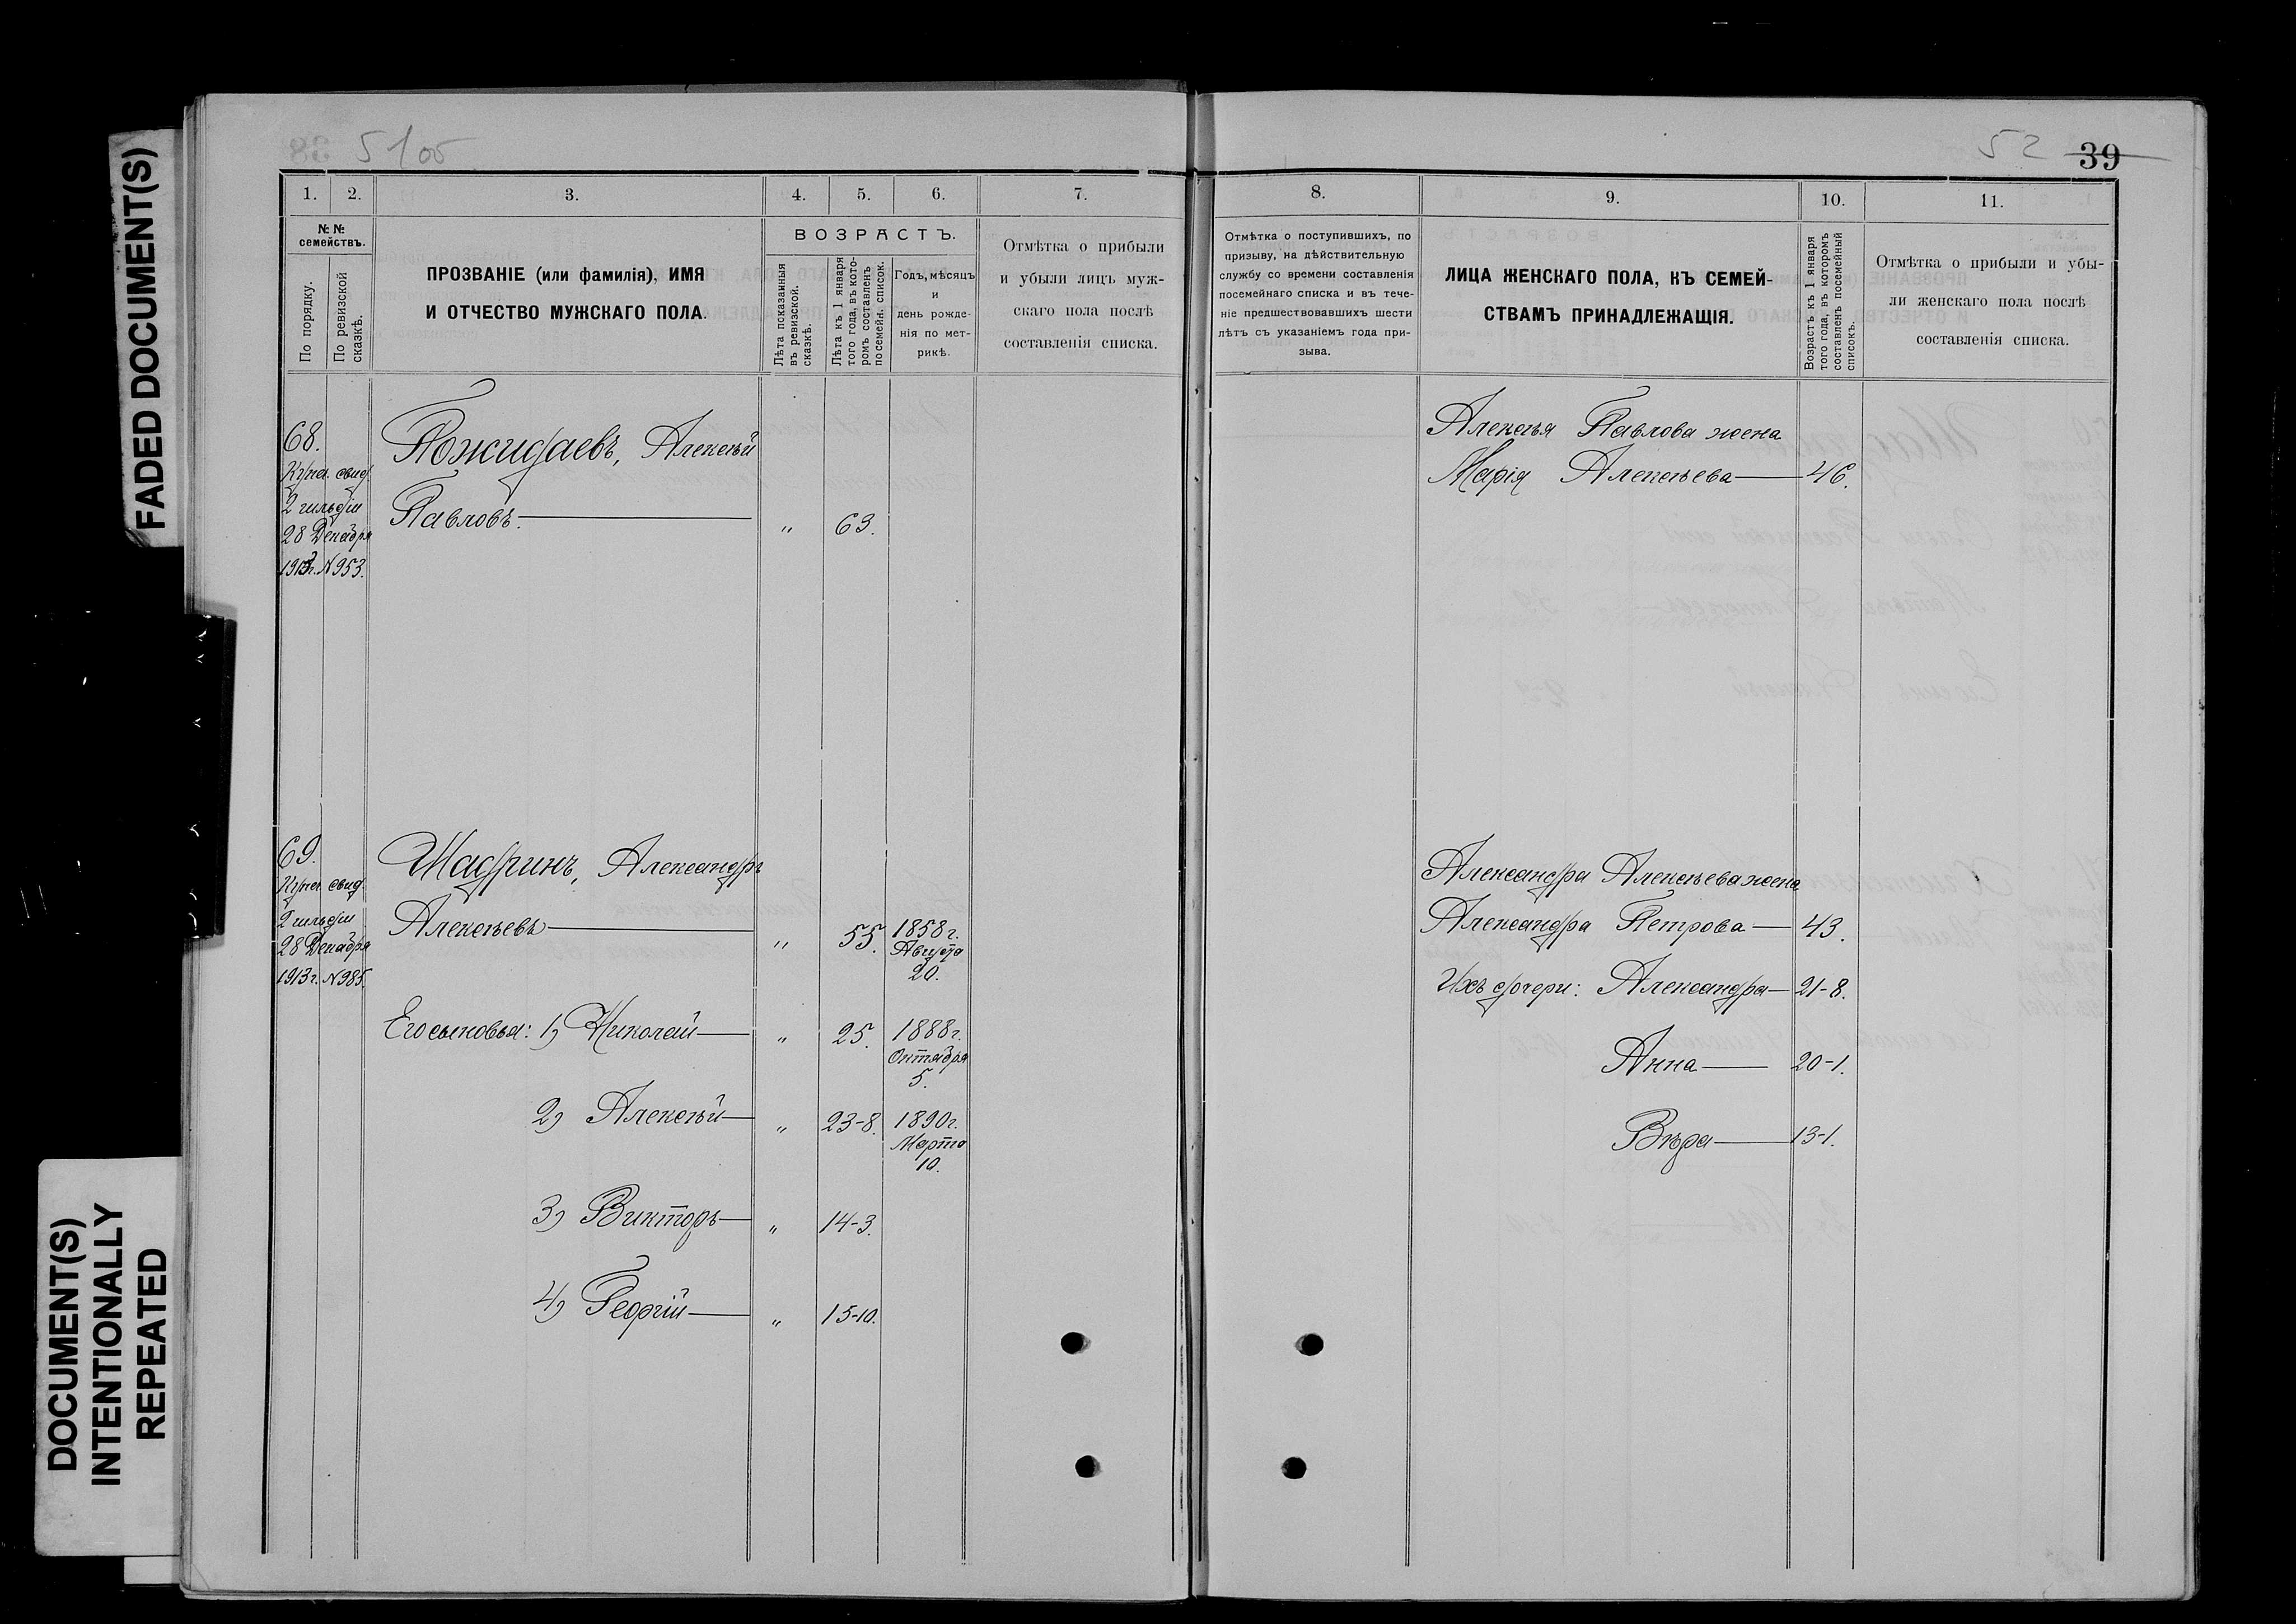 FADED DOCUMENT(S)
DOCUMENT(S)
INTENTIONALLY
REPEATED
51 об
1.
2.
3.
4.
5.
6.
7.
№ №
семействъ.
По порядку.
По ревизской
сказкѣ.
ПРОЗВАНІЕ (или фамилія), ИМЯ
И ОТЧЕСТВО МУЖСКАГО ПОЛА.
ВОЗРАСТЪ.
Лѣта показанныя
въ ревизской.
сказкѣ.
Лѣта къ 1 января
того года, въ кото-
ромъ составленъ
посемейн. список.
Годъ, мѣсяцъ
и
день рожде-
нія по мет-
рикѣ.
Отмѣтка о прибыли
и убыли лицъ муж-
скаго пола послѣ
составленія списка.
68.
Купеч. свид.
2 гильдіи
28 Декабря
1913г. N 953.
Пожидаевъ, Алексѣй
Павловъ. — „ 63.
69.
Купеч. свид.
2 гильдіи
28 Декабря
1913г. N 985.
Шадринъ, Александръ
Алексѣевъ — „ 55. 1858г.
Августа
20.
Его сыновья: 1) Николай — „ 25. 1888г.
Октября
5.
2) Алексѣй — „ 23-8. 1890г.
Марта
10.
3) Викторъ — „ 14-3.
4) Георгій — „ 15-10.
52 39
8.
9.
10.
11.
Отмѣтка о поступившихъ, по
призыву, на дѣйствительную
службу со времени составленія
посемейнаго списка и въ тече-
ніе предшествовавшихъ шести
лѣтъ съ указаніемъ года при-
зыва.
ЛИЦА ЖЕНСКАГО ПОЛА, КЪ СЕМЕЙ-
СТВАМЪ ПРИНАДЛЕЖАЩІЯ.
Возрастъ къ 1 января
того года, въ которомъ
составленъ посемейный
списокъ.
Отмѣтка о прибыли и убы-
ли женскаго пола послѣ
составленія списка.
Алексѣя Павлова жена
Марія Алексѣева — 46.
Александра Алексѣева жена
Александра Петрова — 43.
Ихъ дочери: Александра — 21-8.
Анна — 20-1.
Вѣра — 13-1.